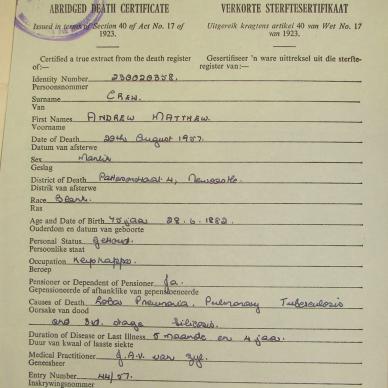 ABRIDGED DEATH CERTIFICATE VERKORTE STERFTESERTIFIKAAT
Issued in terms of Section 40 of Act No. 17 of 1923. Uitgereik kragtens artikel 40 van Wet No. 17 van 1923.
Certified a true extract from the death register of:— Gesertifiseer 'n ware uittreksel uit die sterfteregister van:—
Identity Number 230020358.
Persoonsnommer
Surname CREW.
Van
First Names ANDREW MATTHEW.
Voorname
Date of Death 20th August 1957.
Datum van afsterwe
Sex Manlik
Geslag
District of Death 4, Newcastle.
Distrik van afsterwe
Race Blank.
Ras
Age and Date of Birth 75 jaar 28.6.1882.
Ouderdom en datum van geboorte
Personal Status getroud.
Persoonlike staat
Occupation
Beroep
Pensioner or Dependent of Pensioner Ja.
Gepensioneerde of afhanklike van gepensioneerde
Causes of Death Lobar Pneumonia, Pulmonary Tuberculosis
Oorsake van dood
and 3rd. stage Silicosis.
Duration of Disease or Last Illness 5 maande en 4 jaar.
Duur van kwaal of laaste siekte
Medical Practitioner J.A.V. van Zyl.
Geneesheer
Entry Number 44/57.
Inskrywingsnommer